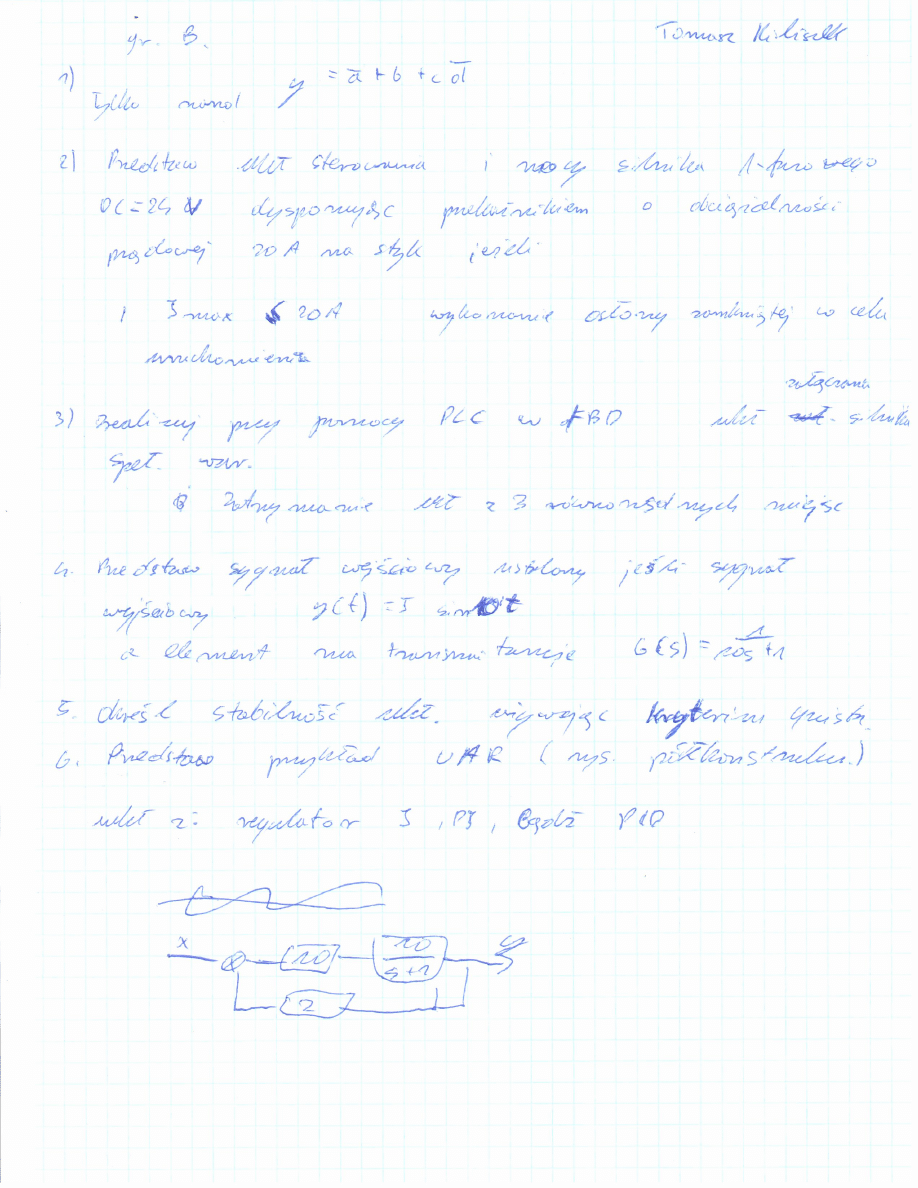 gr. B.
Tomasz
1) y = a̅ + b + c d̅
Tylko nand
2) Przedstaw ukł sterowania i mocy silnika 1-fazowego
DC=24 V dysponując przekaźnikiem o obciążalności
prądowej 20A na styk jeżeli
I max ≤ 20A wykonanie osłony zamkniętej w celu
uruchomienia
załączania
3) Zrealizuj przy pomocy PLC w FBD ukł silnika
speł. war.
Zatrzymanie ukł z 3 równorzędnych miejsc
4. Przedstaw sygnał wyjściowy ustalony jeśli sygnał
wejściowy y(t) = 5 sin t
a element ma transmitancję G(s) = 1/(10s+1)
5. Określ stabilność ukł. używając kryterium
6. Przedstaw przykład UAR (rys. półkonstrukc.)
ukł z: regulator I, PI, bądź PID
x 10 10/(s+1) y
2